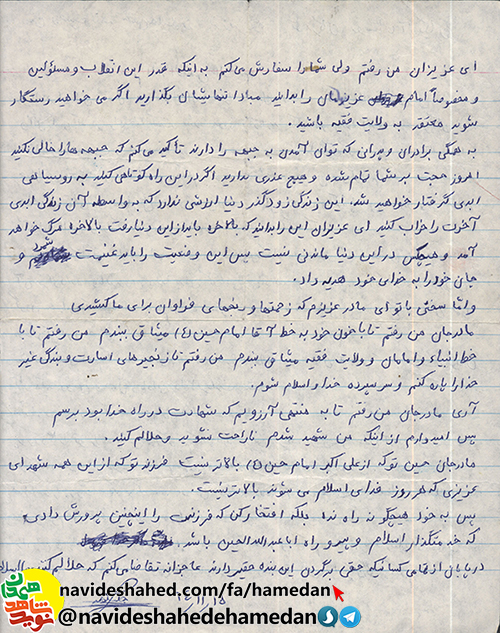 ای عزیزان من رفتم ولی شما را سفارش می کنم به اینکه قدر این انقلاب و مسئولین
و مخصوصاً امام عزیزمان را بدانید مبادا تنهایشان بگذارید اگر می خواهید رستگار
شوید معتقد به ولایت فقیه باشید.
به همگی برادران و پدران که توان آمدن به جبهه را دارند تأکید می کنم که جبهه ها را خالی نکنید
امروز حجت بر شما تمام شده و هیچ عذری ندارید اگر در این راه کوتاهی کنید به روسیاهی
ابدی گرفتار خواهید شد. این زندگی زودگذر دنیا ارزشی ندارد که به واسطه آن زندگی ابدی
آخرت را خراب کنند ای عزیزان این را بدانید که بالاخره باید از این دنیا رفت بالاخره مرگ خواهد
آمد و هیچکس در این دنیا ماندنی نیست پس این وضعیت را باید غنیمت شمرد و
جان خود را به خدای خود هدیه داد.
و اما سخنی با تو ای مادر عزیزم که زحمتها و رنجهای فراوان برای ما کشیدی
مادرجان من رفتم تا با خون خود به خط آقا امام حسین (ع) میثاق بندم من رفتم تا با
خط انبیاء و امامان و ولایت فقیه میثاق بندم من رفتم تا زنجیرهای اسارت و بندگی غیر
خدا را پاره کنم و سرسپرده خدا و اسلام شوم.
آری مادرجان من رفتم تا به منتهی آرزویم که شهادت در راه خدا بود برسم
پس امیدوارم از اینکه من شهید شدم ناراحت نشوید و حلالم کنید.
مادرجان حسین تو که از علی اکبر امام حسین (ع) بالاتر نیست فرزند تو که از این همه شهدای
عزیزی که هر روز فدای اسلام می شوند بالاتر نیست.
پس به خود هیچگونه راه نده بلکه افتخار کن که فرزندت را اینچنین پرورش دادی
که خدمتگذار اسلام و پیرو راه اباعبدالله الحسین باشد
در پایان از تمامی کسانیکه حقی بر گردن این بنده حقیر دارند عاجزانه تقاضا می کنم که حلالم کنند
navideshahed.com/fa/hamedan
navideshahedehamedan
نوید شاهد